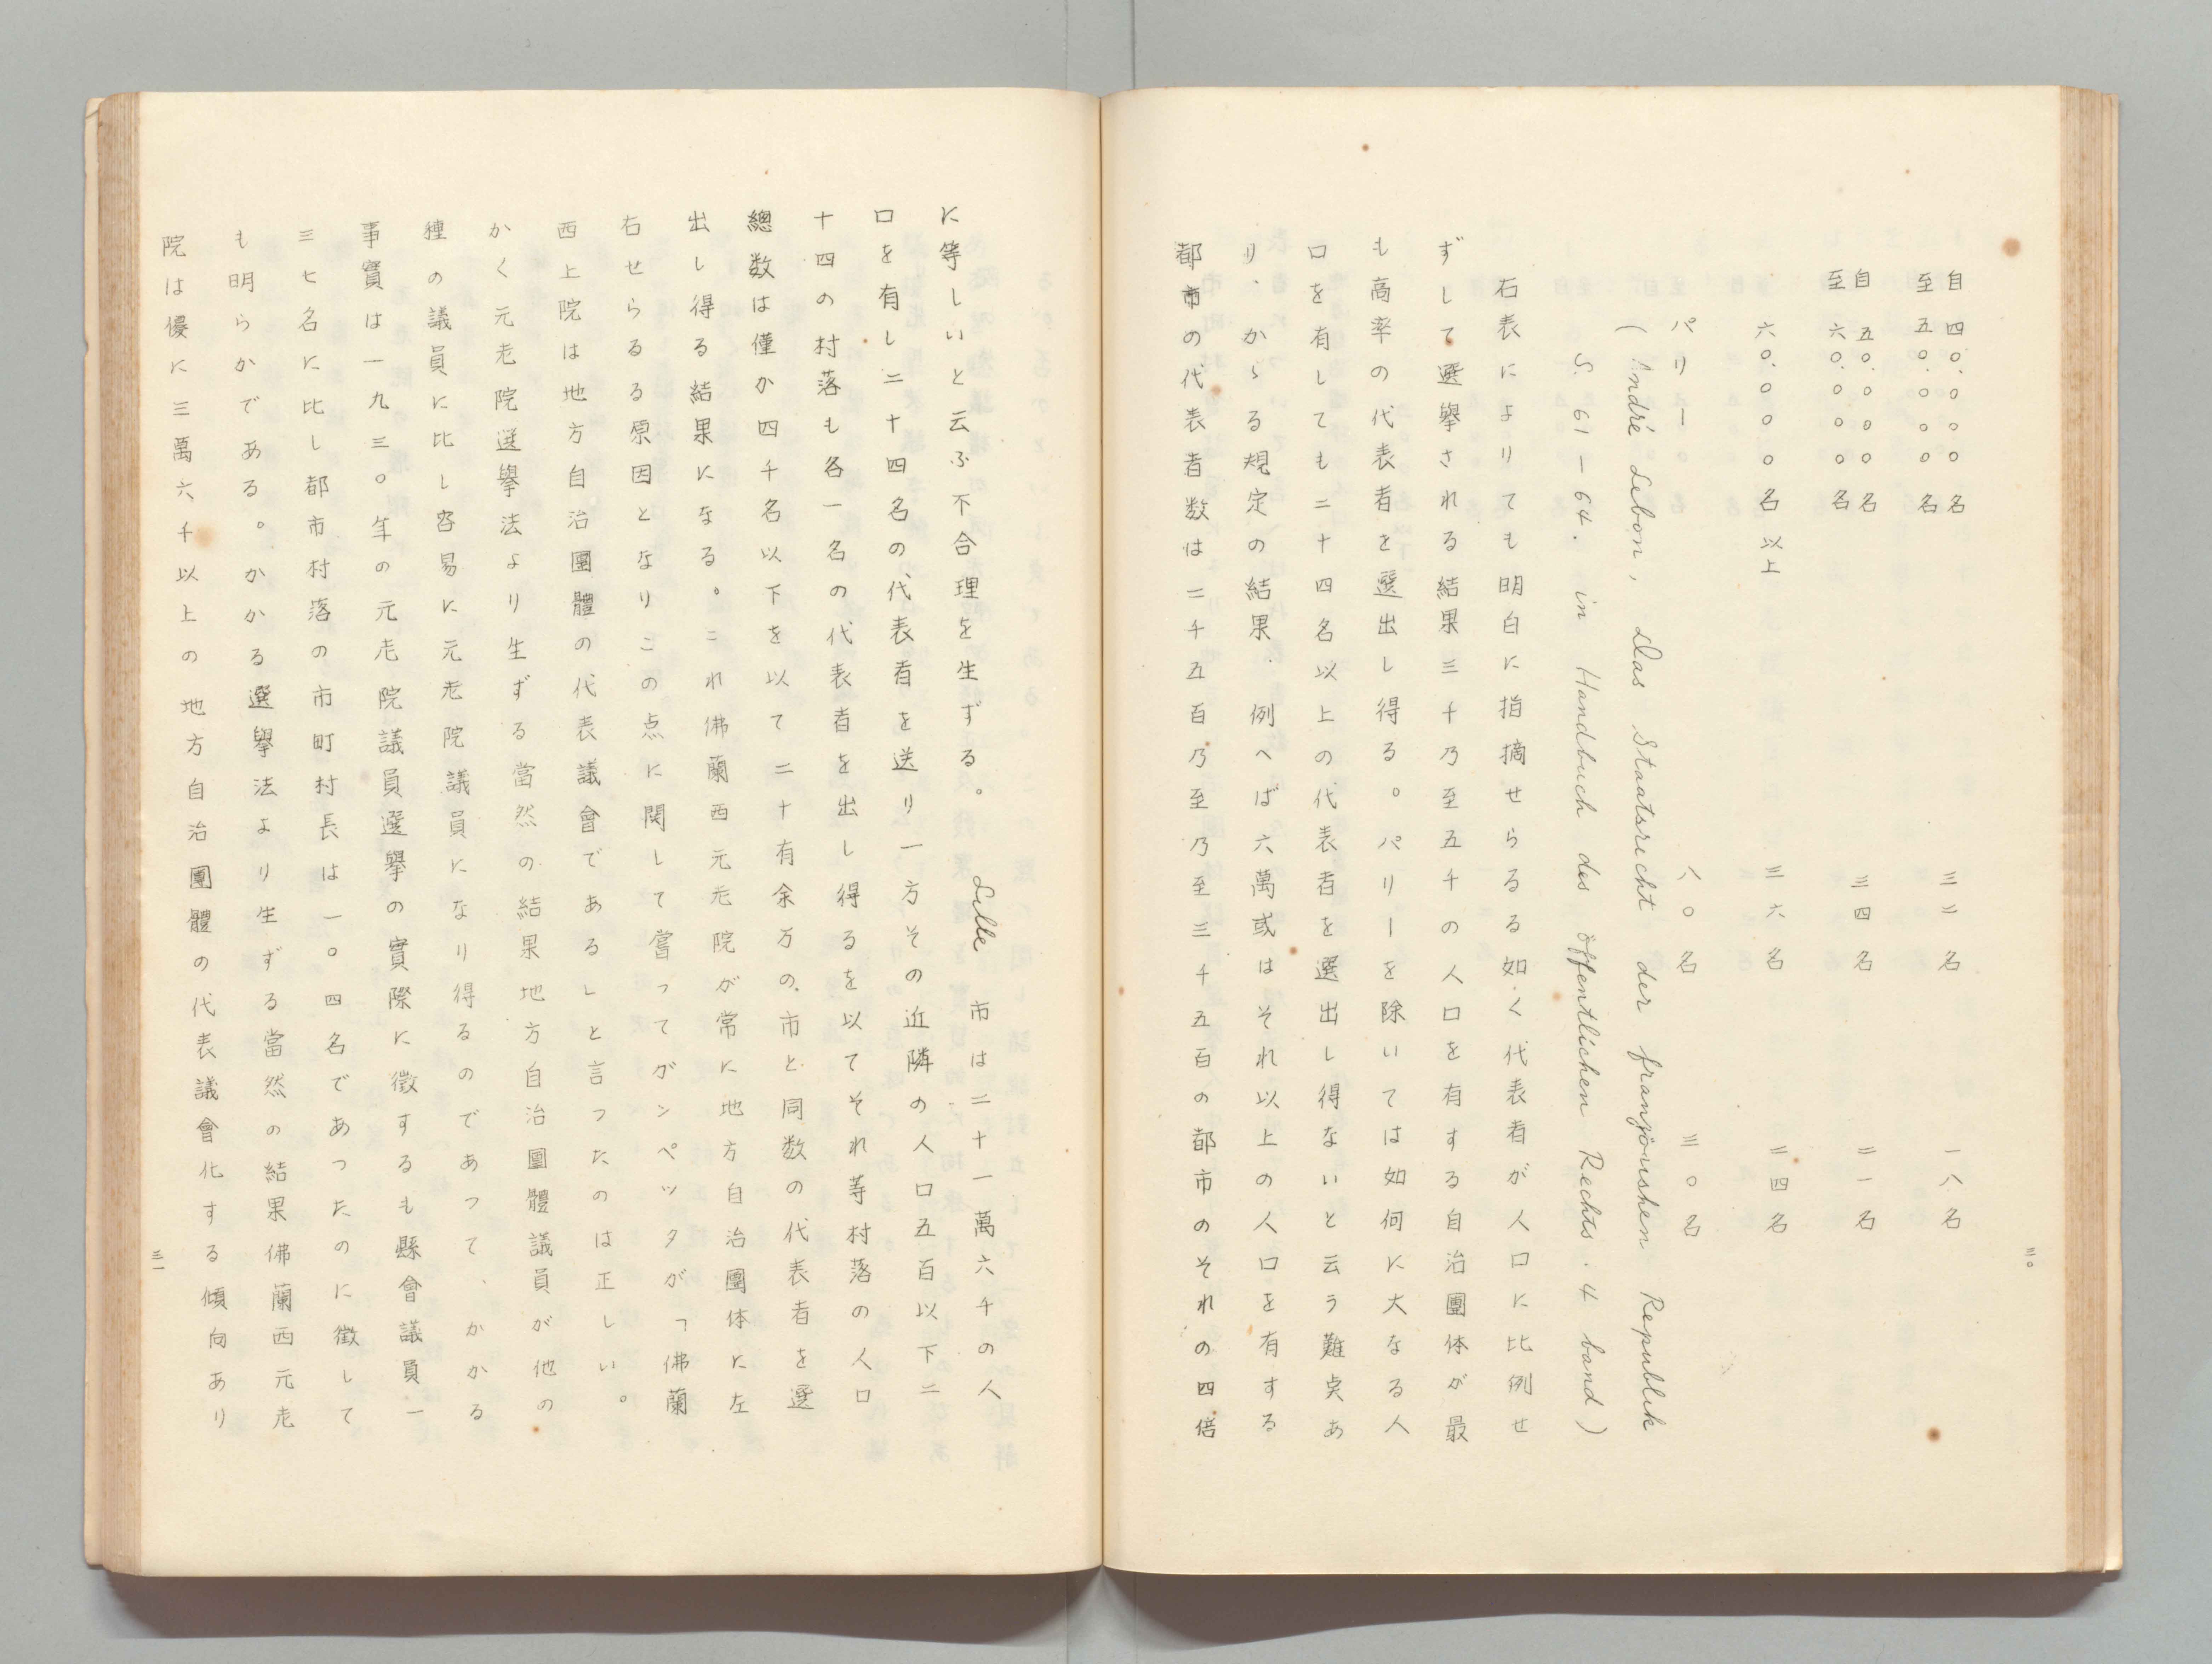 三〇
自 四〇.〇〇〇名 三二名 一八名
至 五〇.〇〇〇名
自 五〇.〇〇〇名 三四名 二一名
至 六〇.〇〇〇名
六〇.〇〇〇名以上 三六名 二四名
パリー 八〇名 三〇名
(André Lebon, Das Staatsrecht der französishen Republik
S. 61—64. in Handbuch des öffentlichen Rechts. 4 band)
右表によりても明白に指摘せらるる如く代表者が人口に比例せ
ずして選擧される結果三千乃至五千の人口を有する自治團体が最
も高率の代表者を選出し得る。パリーを除いては如何に大なる人
口を有しても二十四名以上の代表者を選出し得ないと云う難点あ
り、かゝる規定の結果.例へば六萬或はそれ以上の人口を有する
都市の代表者数は二千五百乃至乃至三千五百の都市のそれの四倍
に等しいと云ふ不合理を生ずる。Lille 市は二十一萬六千の人
口を有し二十四名の代表者を送り一方その近隣の人口五百以下二
十四の村落も各一名の代表者を出し得るを以てそれ等村落の人口
總数は僅か四千名以下を以て二十有余万の市と同数の代表者を選
出し得る結果になる。これ佛蘭西元老院が常に地方自治團体に左
右せらるる原因となりこの点に関して嘗ってガンベッタが「佛蘭
西上院は地方自治團體の代表議會である」と言つたのは正しい。
かく元老院選擧法より生ずる當然の結果地方自治團體議員が他の
種の議員に比し容易に元老院議員になり得るのであつて、かかる
事實は一九三〇年の元老院議員選擧の實際に徴するも縣會議員一
三七名に比し都市村落の市町村長は一〇四名であつたのに徴して
も明らかである。かかる選擧法より生ずる當然の結果佛蘭西元老
院は優に三萬六千以上の地方自治團體の代表議會化する傾向あり
三一